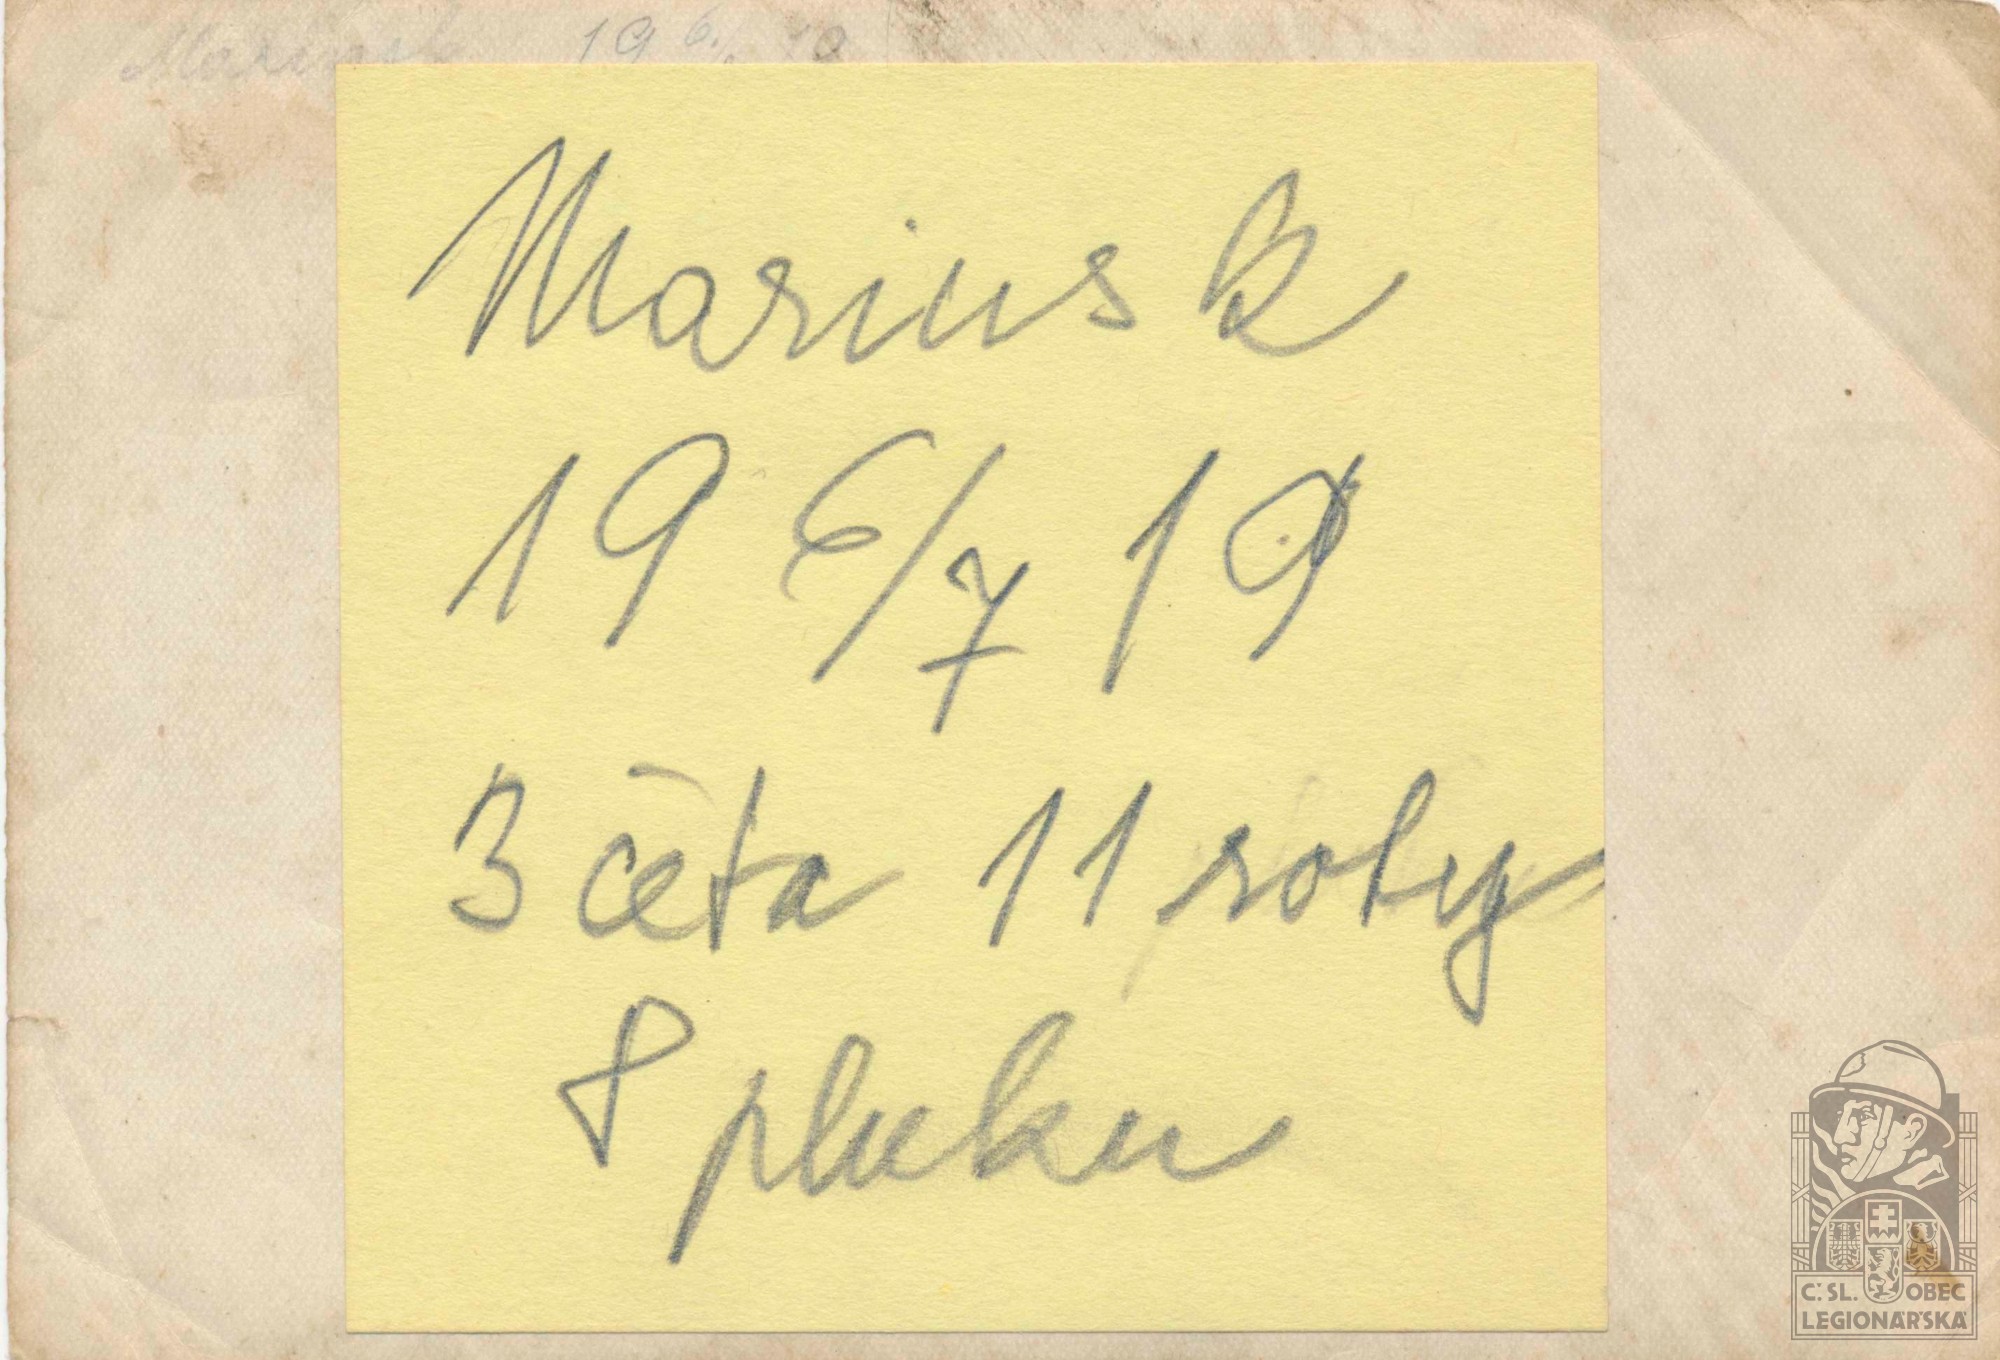 Mariinsk 19 6/7 19
Mariinsk
19 6/7 19
3 četa 11 roty
8 pluku
Č.SL. OBEC
LEGIONÁŘSKÁ